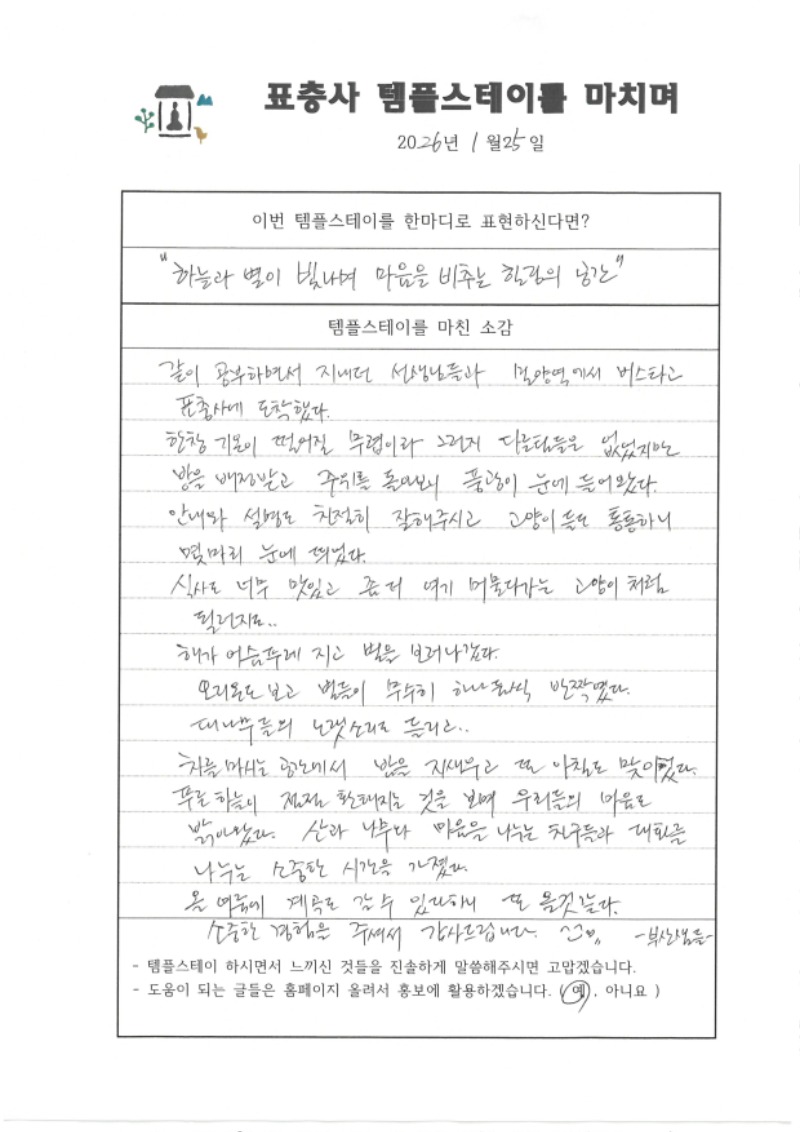 표충사 템플스테이를 마치며
2026년 1월 25일
이번 템플스테이를 한마디로 표현하신다면?
"하늘과 별이 빛나며 마음을 비추는 힐링의 공간"
템플스테이를 마친 소감
같이 공부하면서 지내던 선생님들과 밀양역에서 버스타고
표충사에 도착했다.
한창 기온이 떨어질 무렵이라 그런지 다른팀들은 없었지만
방을 배정받고 주위를 돌아보니 풍광이 눈에 들어왔다.
안내와 설명도 친절히 잘해주시고 고양이들도 통통하니
몇마리 눈에 띄었다.
식사도 너무 맛있고 좀 더 여기 머물다가는 고양이처럼
될런지도..
해가 어슴푸레 지고 별을 보러나갔다.
오리온도 보고 별들이 무수히 하나 둘씩 반짝였다.
대나무들의 노랫소리도 들리고..
차를 마시는 공간에서 밤을 지새우고 또 아침도 맞이했다.
푸른 하늘이 점점 환해지는 것을 보며 우리들의 마음도
밝아왔다. 산과 나무와 마음을 나누는 친구들과 대화를
나누는 소중한 시간을 가졌다.
올 여름에 계곡도 갈 수 있다하니 또 올것같다.
소중한 경험을 주셔서 감사드립니다. -부산샘들-
- 템플스테이 하시면서 느끼신 것들을 진솔하게 말씀해주시면 고맙겠습니다.
- 도움이 되는 글들은 홈페이지 올려서 홍보에 활용하겠습니다. ( 예 , 아니요 )